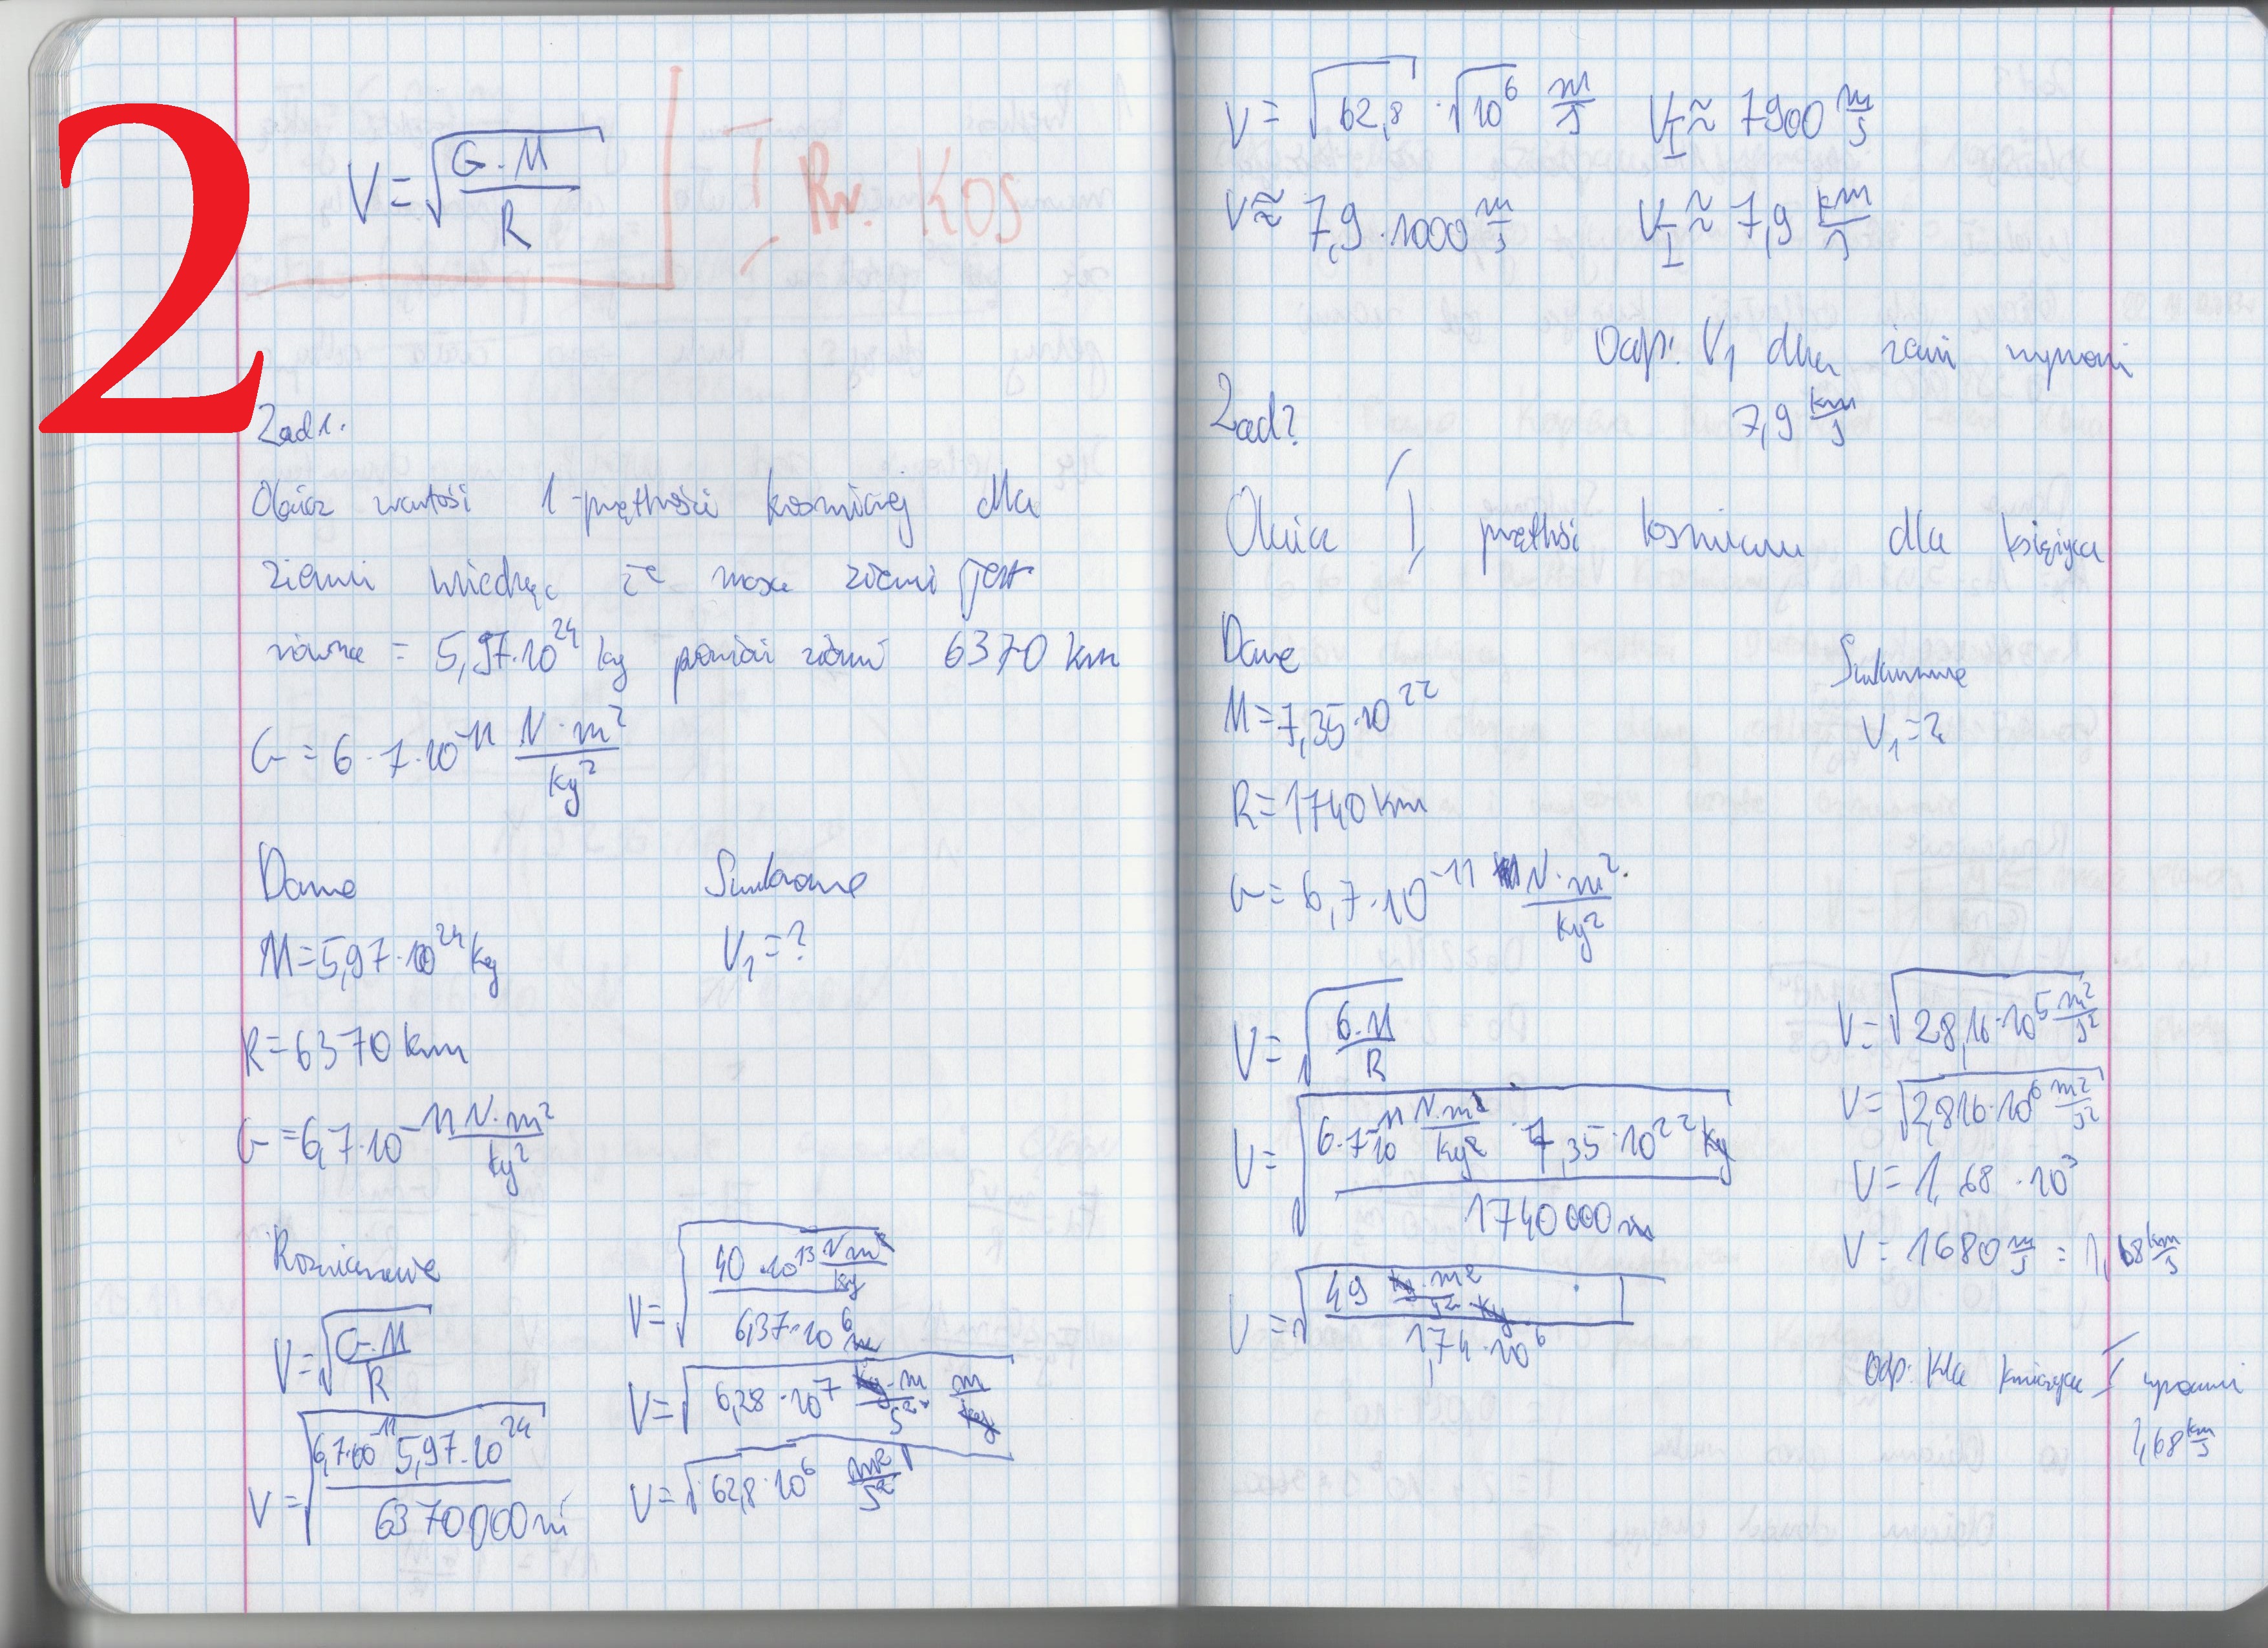 2
V = √(G · M / R)
I Pr. KOS
Zad 1.
Oblicz wartość 1 prędkości kosmicznej dla
ziemi wiedząc że masa ziemi jest
równa = 5,97·10²⁴ kg promień ziemi 6370 km
G = 6·7·10⁻¹¹ N·m²/kg²
Dane Szukane
M = 5,97·10²⁴ kg V₁ = ?
R = 6370 km
G = 6,7·10⁻¹¹ N·m²/kg²
Rozwiązanie
V = √(G·M / R)
V = √(6,7·10⁻¹¹ 5,97·10²⁴ / 6370000 m)
V = √(40·10¹³ Nm²/kg / 6,37·10⁶ m)
V = √(6,28·10⁷ kg·m/s² · m/kg)
V = √(62,8·10⁶ m²/s²)
V = √62,8 · √10⁶ m/s V_I ≈ 7900 m/s
V ≈ 7,9 · 1000 m/s V_I ≈ 7,9 km/s
Odp: V₁ dla ziemi wynosi
7,9 km/s
Zad 2
Oblicz I prędkość kosmiczną dla księżyca
Dane Szukane
M = 7,35·10²² V₁ = ?
R = 1740 km
G = 6,7·10⁻¹¹ N·m²/kg²
V = √(G·M / R)
V = √(6·7·10⁻¹¹ N·m²/kg² · 7,35·10²² kg / 1740000 m)
V = √(49 kg·m²/s²·kg / 1,74·10⁶)
V = √(28,16·10⁵ m²/s²)
V = √(2,816·10⁶ m²/s²)
V = 1,68·10³
V = 1680 m/s = 1,68 km/s
Odp: Dla księżyca I wynosi
1,68 km/s